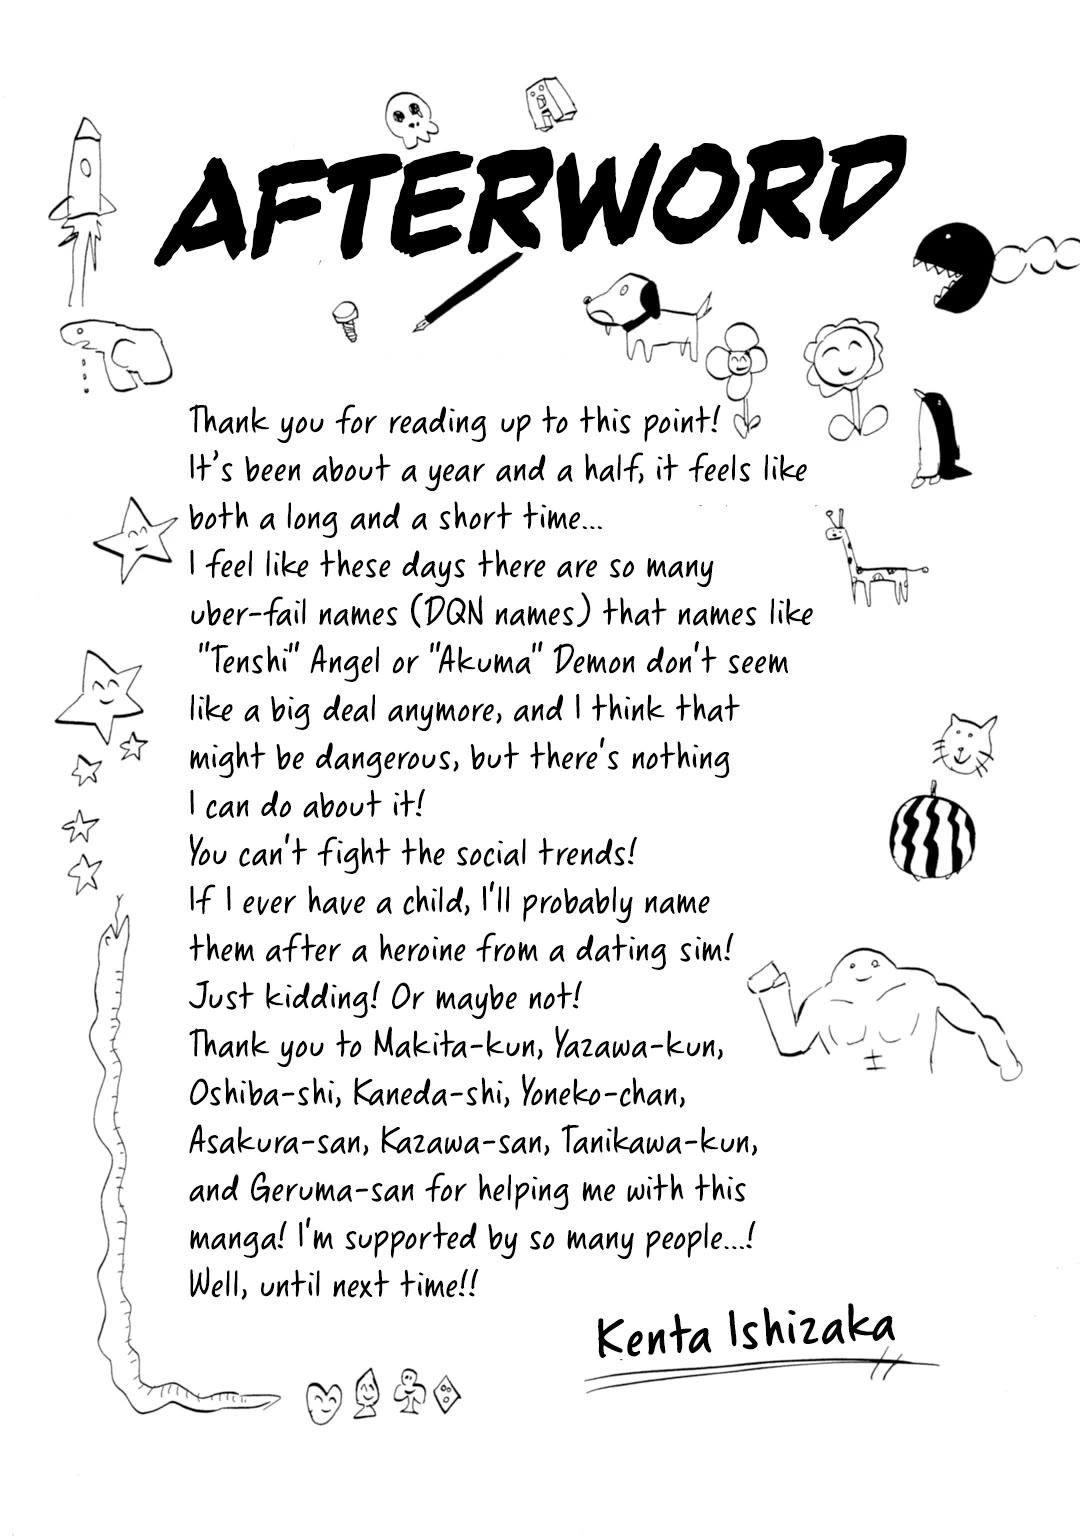 AFTERWORD
Thank you for reading up to this point!
It's been about a year and a half, it feels like
both a long and a short time...
I feel like these days there are so many
uber-fail names (DQN names) that names like
"Tenshi" Angel or "Akuma" Demon don't seem
like a big deal anymore, and I think that
might be dangerous, but there's nothing
I can do about it!
You can't fight the social trends!
If I ever have a child, I'll probably name
them after a heroine from a dating sim!
Just kidding! Or maybe not!
Thank you to Makita-kun, Yazawa-kun,
Oshiba-shi, Kaneda-shi, Yoneko-chan,
Asakura-san, Kazawa-san, Tanikawa-kun,
and Geruma-san for helping me with this
manga! I'm supported by so many people...!
Well, until next time!!
Kenta Ishizaka